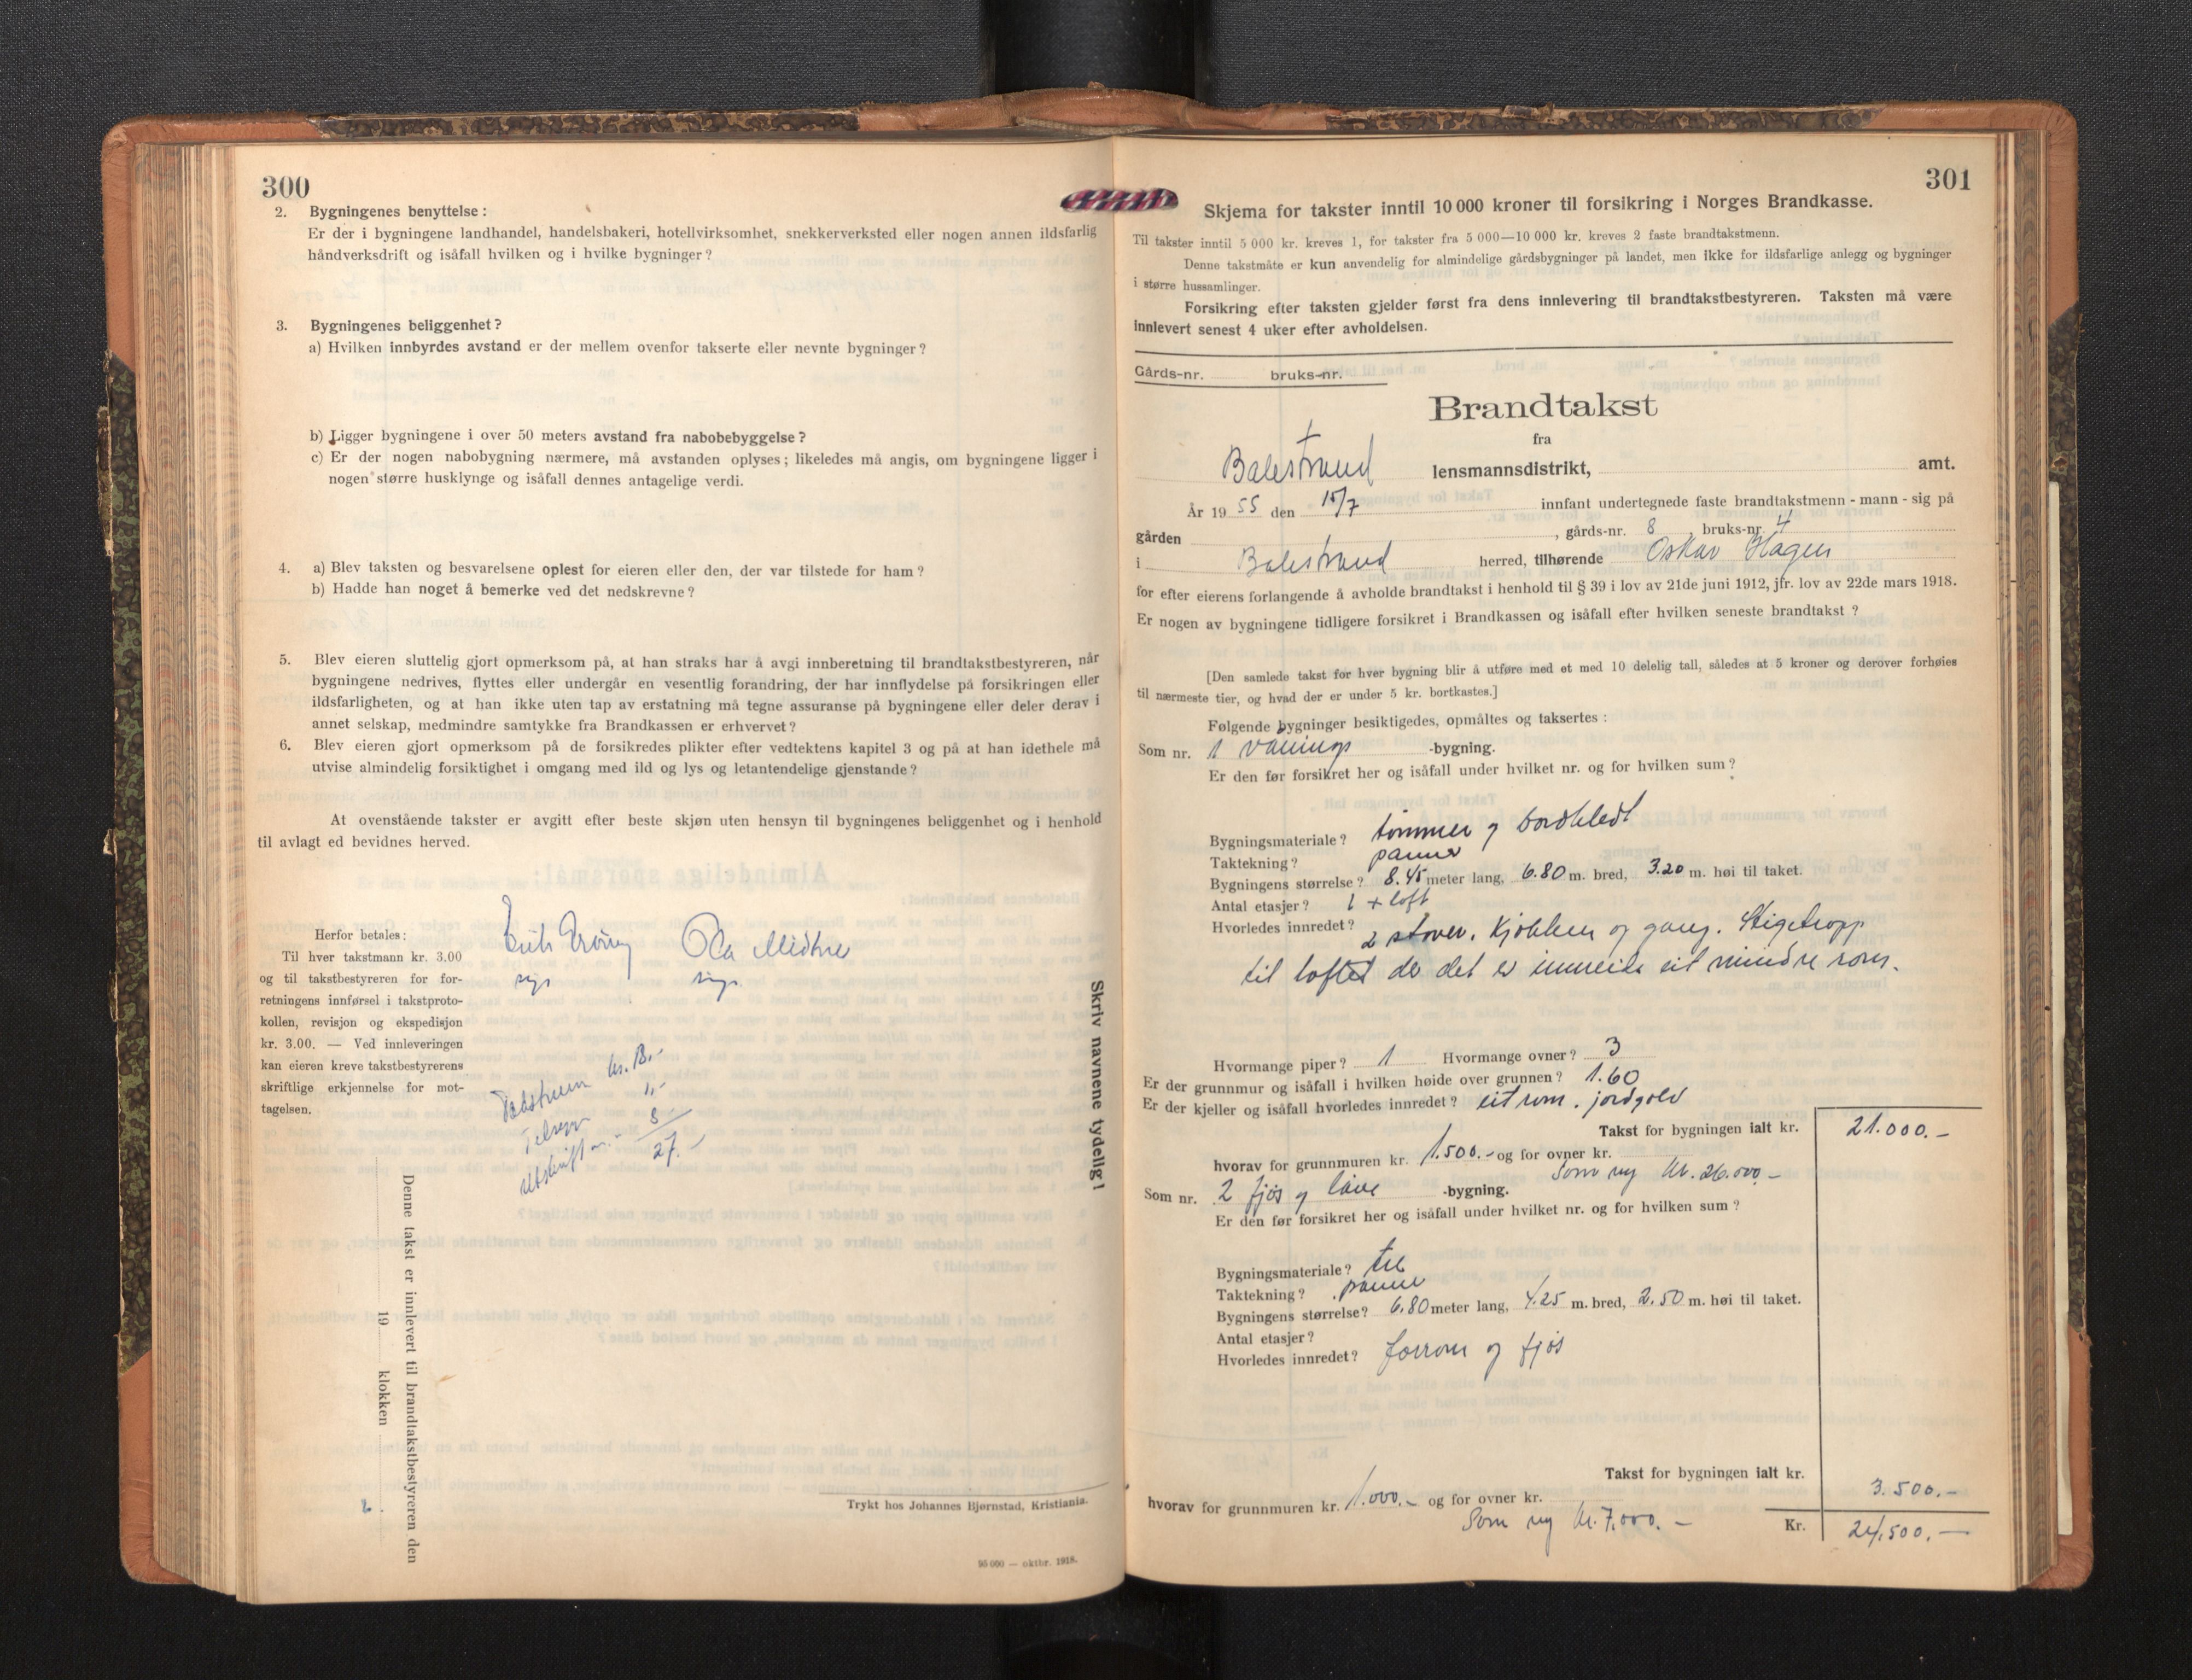 300
2. Bygningenes benyttelse:
Er der i bygningene landhandel, handelsbakeri, hotellvirksomhet, snekkerverksted eller nogen annen ildsfarlig
håndverksdrift og isåfall hvilken og i hvilke bygninger?
3. Bygningenes beliggenhet?
a) Hvilken innbyrdes avstand er der mellem ovenfor takserte eller nevnte bygninger?
b) Ligger bygningene i over 50 meters avstand fra nabobebyggelse?
c) Er der nogen nabobygning nærmere, må avstanden oplyses; likeledes må angis, om bygningene ligger i
nogen større husklynge og isåfall dennes antagelige verdi.
4. a) Blev taksten og besvarelsene oplest for eieren eller den, der var tilstede for ham?
b) Hadde han noget å bemerke ved det nedskrevne?
5. Blev eieren sluttelig gjort opmerksom på, at han straks har å avgi innberetning til brandtakstbestyreren, når
bygningene nedrives, flyttes eller undergår en vesentlig forandring, der har innflydelse på forsikringen eller
ildsfarligheten, og at han ikke uten tap av erstatning må tegne assuranse på bygningene eller deler derav i
annet selskap, medmindre samtykke fra Brandkassen er erhvervet?
6. Blev eieren gjort opmerksom på de forsikredes plikter efter vedtektens kapitel 3 og på at han idethele må
utvise almindelig forsiktighet i omgang med ild og lys og letantendelige gjenstande?
At ovenstående takster er avgitt efter beste skjøn uten hensyn til bygningenes beliggenhet og i henhold
til avlagt ed bevidnes herved.
Herfor betales:
Til hver takstmann kr. 3.00
og til takstbestyreren for for-
retningens innførsel i takstproto-
kollen, revisjon og ekspedisjon
kr. 3.00. — Ved innleveringen
kan eieren kreve takstbestyrerens
skriftlige erkjennelse for mot-
tagelsen.
Ola
sign sign
8
27.-
Skriv navnene tydelig!
Denne takst er innlevert til brandtakstbestyreren den
19 klokken
Trykt hos Johannes Bjørnstad, Kristiania.
95 000 — oktbr. 1918.
301
Skjema for takster inntil 10 000 kroner til forsikring i Norges Brandkasse.
Til takster inntil 5 000 kr. kreves 1, for takster fra 5 000—10 000 kr. kreves 2 faste brandtakstmenn.
Denne takstmåte er kun anvendelig for almindelige gårdsbygninger på landet, men ikke for ildsfarlige anlegg og bygninger
i større hussamlinger.
Forsikring efter taksten gjelder først fra dens innlevering til brandtakstbestyreren. Taksten må være
innlevert senest 4 uker efter avholdelsen.
Gårds-nr. bruks-nr.
Brandtakst
fra
Balestrand lensmannsdistrikt, amt.
År 1955 den 15/7 innfant undertegnede faste brandtakstmenn - mann - sig på
gården , gårds-nr. 8 bruks-nr. 4
i Balestrand herred, tilhørende Oskar Hagen
for efter eierens forlangende å avholde brandtakst i henhold til § 39 i lov av 21de juni 1912, jfr. lov av 22de mars 1918.
Er nogen av bygningene tidligere forsikret i Brandkassen og isåfall efter hvilken seneste brandtakst?
[Den samlede takst for hver bygning blir å utføre med et med 10 delelig tall, således at 5 kroner og derover forhøies
til nærmeste tier, og hvad der er under 5 kr. bortkastes.]
Følgende bygninger besiktigedes, opmåltes og taksertes:
Som nr. 1 vånings -bygning.
Er den før forsikret her og isåfall under hvilket nr. og for hvilken sum?
Bygningsmateriale? tømmer og bordkledt
Taktekning? panner
Bygningens størrelse? 8.45 meter lang, 6.80 m. bred, 3.20 m. høi til taket.
Antal etasjer? 1 + loft
Hvorledes innredet? 2 stover. Kjøkken og gang. Stigetropp
til loftet der det er innreide eit mindre rom.
Hvormange piper? 1 Hvormange ovner? 3
Er der grunnmur og isåfall i hvilken høide over grunnen? 1.60
Er der kjeller og isåfall hvorledes innredet? eit rom. jordgolv
Takst for bygningen ialt kr. 21.000.-
hvorav for grunnmuren kr. 1.500.- og for ovner kr.
Som ny kr. 26.000.-
Som nr. 2 fjøs og løve -bygning.
Er den før forsikret her og isåfall under hvilket nr. og for hvilken sum?
Bygningsmateriale? tre
Taktekning? panne
Bygningens størrelse? 6.80 meter lang, 4.25 m. bred, 2.50 m. høi til taket.
Antal etasjer?
Hvorledes innredet? forrom og fjøs
Takst for bygningen ialt kr. 3.500.-
hvorav for grunnmuren kr. 1.000.- og for ovner kr.
Som ny kr. 7.000.-
Kr. 24.500.-